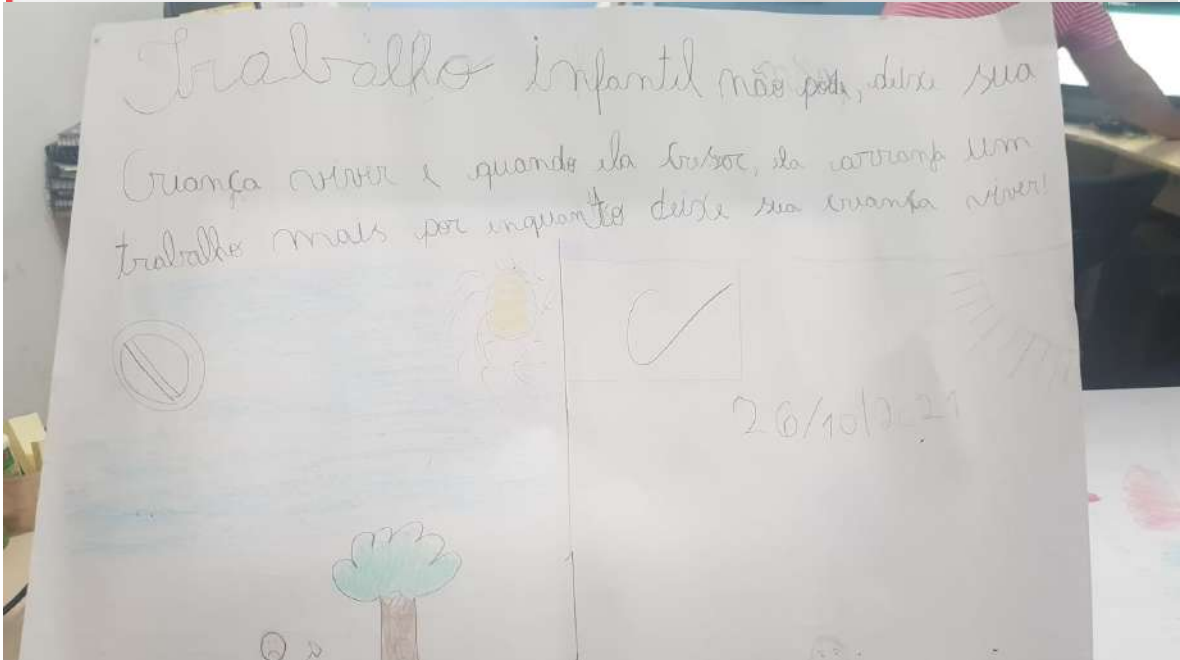 Trabalho infantil não pode, deixe sua
Criança viver e quando ela creser, ela arranja um
trabalho mais por inquanto deixe sua criança viver!
26/10/2021